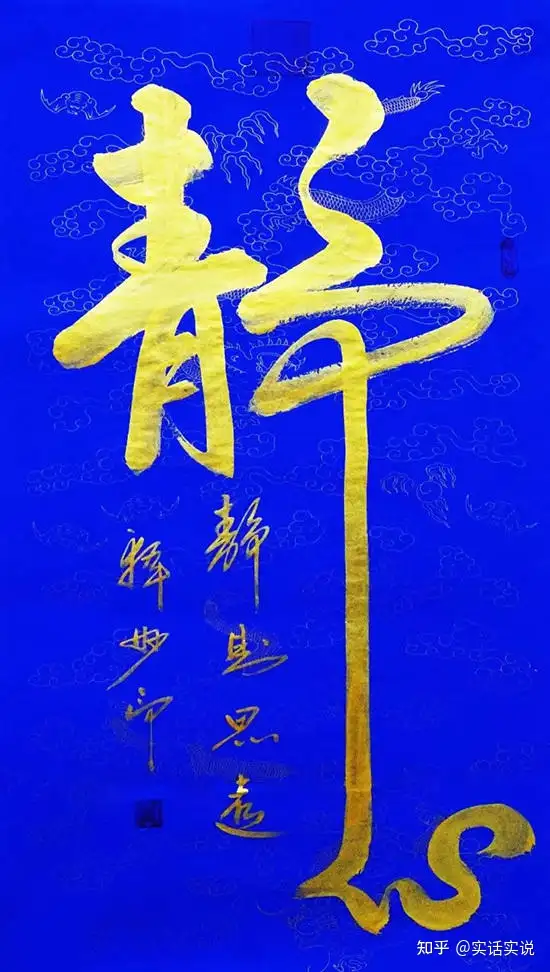 静
静则思远
释妙印
知乎 @实话实说